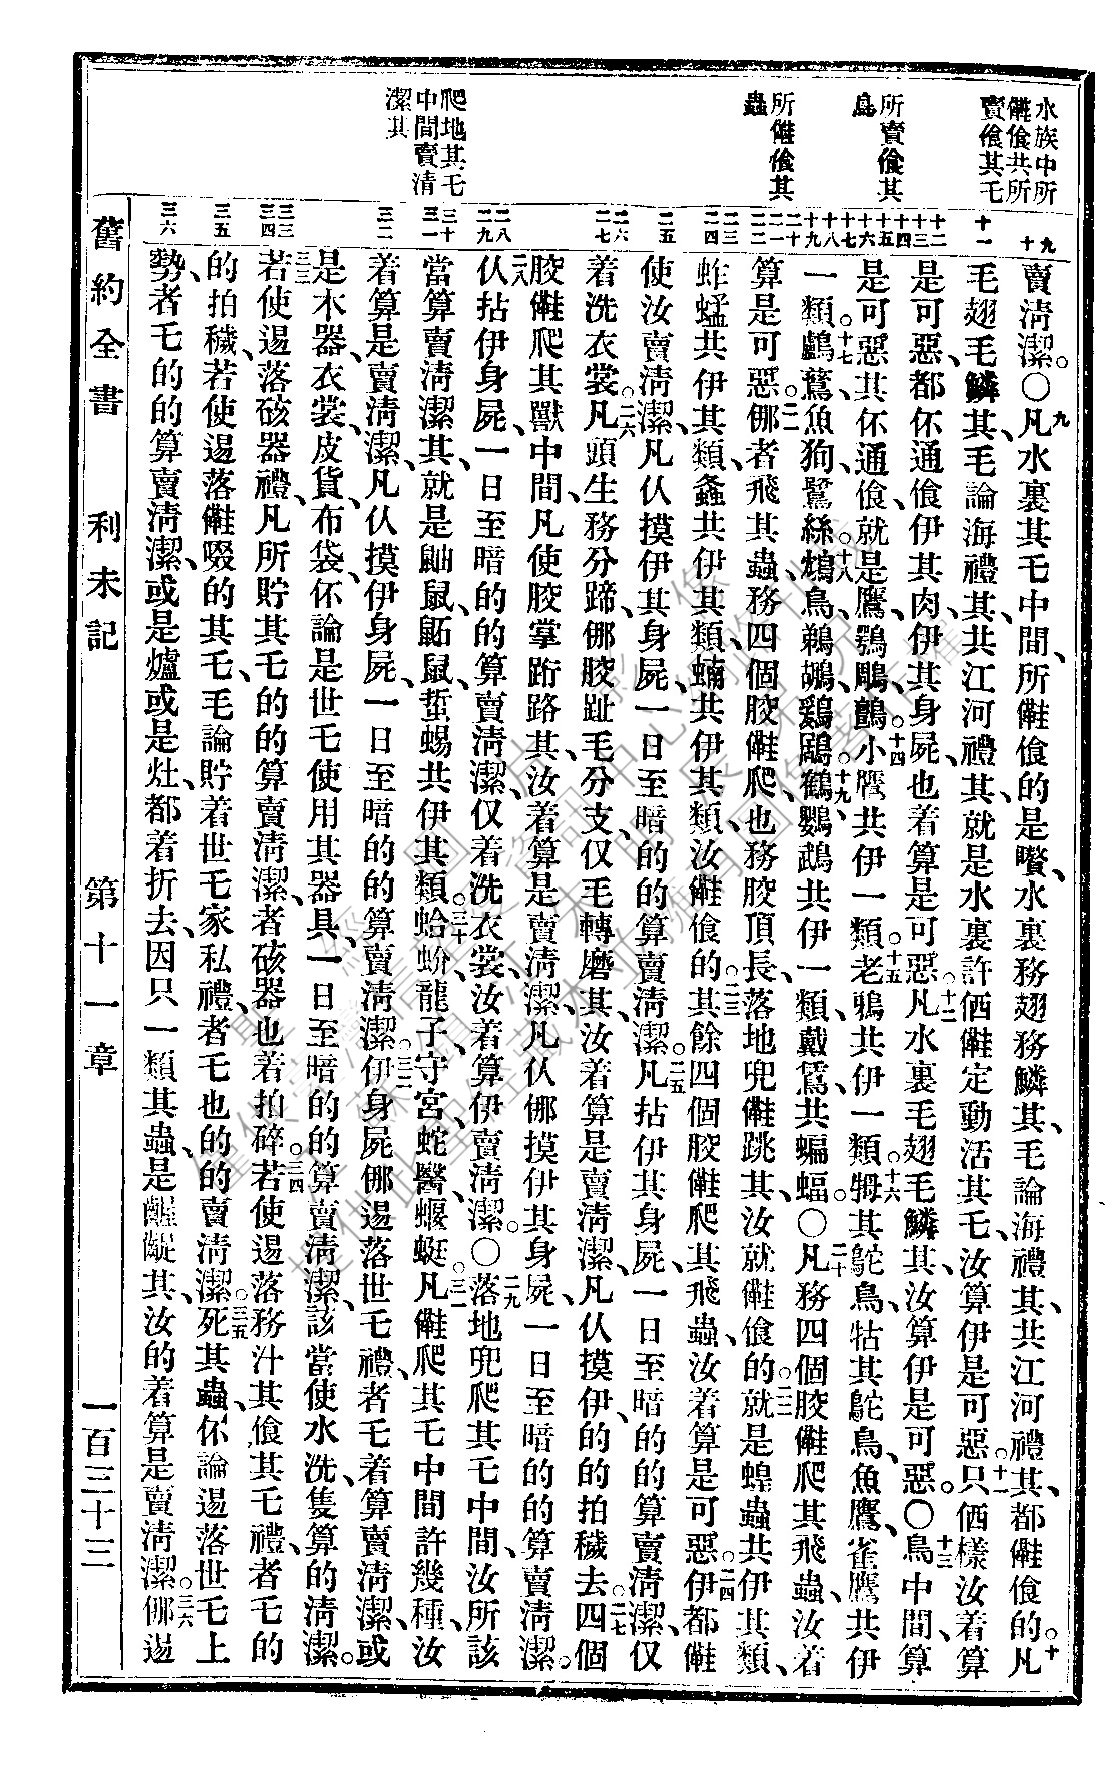 水族中所
儺飧共所
賣飧其乇
所賣飧其
鳥
所儺飧其
蟲
爬地其乇
中間賣清
潔其
賣清潔。〇九凡水裏其乇中間、所儺飧的是嚽、水裏務翅務鱗其、毛論海禮其、共江河禮其、都儺飧的。十凡
毛翅毛鱗其、毛論海禮其、共江河禮其、就是水裏許𠆧儺定動活其乇、汝算伊是可惡。十一只𠆧樣汝着算
是可惡、都伓通飧伊其肉、伊其身屍也着算是可惡。十二凡水裏毛翅毛鱗其、汝算伊是可惡。〇十三鳥中間、算
是可惡其伓通飧、就是鷹、鶚、鵰、鸇。十四小鷹共伊一類。十五老鴉共伊一類。十六牳其鴕鳥、牯其鴕鳥、魚鷹、雀鷹共伊
一類。十七鸕鶿、魚狗、鷺絲。十八鴆鳥、鵜鶘、鷄鶋。十九鶴、鸚鵡共伊一類、戴鵀共蝙蝠。〇二十凡務四個骹儺爬其飛蟲、汝着
算是可惡。二一㑚者飛其蟲、務四個骹儺爬、也務骹頂長、落地兜儺跳其、汝就儺飧的。二二就是蝗蟲共伊其類、
蚱蜢共伊其類、螽共伊其類、蝻共伊其類、汝儺飧的。二三其餘四個骹儺爬其飛蟲、汝着算是可惡。二四伊都儺
使汝賣清潔、凡伩摸伊其身屍、一日至暗的的算賣清潔。二五凡拈伊其身屍、一日至暗的的算賣清潔、仅
着洗衣裳。二六凡頭生務分蹄、㑚骹趾毛分支、仅毛轉磨其、汝着算是賣清潔、凡伩摸伊的的拍穢去。二七四個
骹儺爬其獸中間、凡使骹掌跨路其、汝着算是賣清潔、凡伩㑚摸伊其身屍、一日至暗的的算賣清潔。
二八伩拈伊身屍、一日至暗的的算賣清潔、仅着洗衣裳、汝着算伊賣清潔。〇二九落地兜爬其乇中間、汝所該
當算賣清潔其、就是鼬鼠、鼫鼠、蜇蜴共伊其類。三十蛤蚡、龍子、守宮、蛇醫、蝘蜓。三一凡儺爬其乇中間許幾種、汝
着算是賣清潔、凡伩摸伊身屍、一日至暗的的算賣清潔。三二伊身屍㑚逿落世乇禮、者乇着算賣清潔、或
是木器、衣裳、皮貨、布袋、伓論是世乇使用其器具、一日至暗的的算賣清潔、該當使水洗、隻算的清潔。
三三若使逿落硋器禮、凡所貯其乇的的算賣清潔、者硋器也着拍碎。三四若使逿落務汁其飧其乇禮、者乇的
的拍穢、若使逿落儺啜的其乇、毛論貯着世乇家私禮、者乇也的的賣清潔。三五死其蟲、伓論逿落世乇上
勢、者乇的的算賣清潔、或是爐或是灶、都着折去、因只一類其蟲、是齷齪其、汝的着算是賣清潔。三六㑚逿
舊約全書 利未記 第十一章 一百三十三